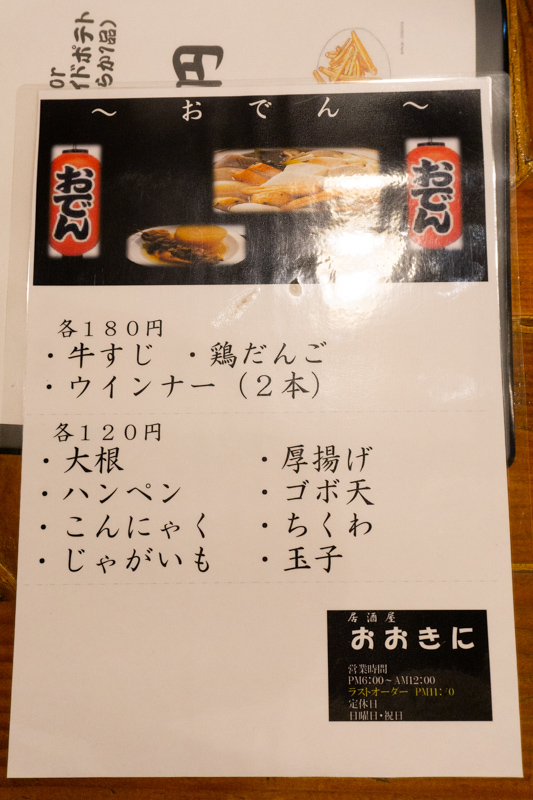 or
イドポテト
らか1品)
円
～ おでん ～
おでん
おでん
各１８０円
・牛すじ ・鶏だんご
・ウインナー（２本）
各１２０円
・大根 ・厚揚げ
・ハンペン ・ゴボ天
・こんにゃく ・ちくわ
・じゃがいも ・玉子
居酒屋
おおきに
営業時間
PM6:00～AM12:00
ラストオーダー
定休日
日曜日・祝日